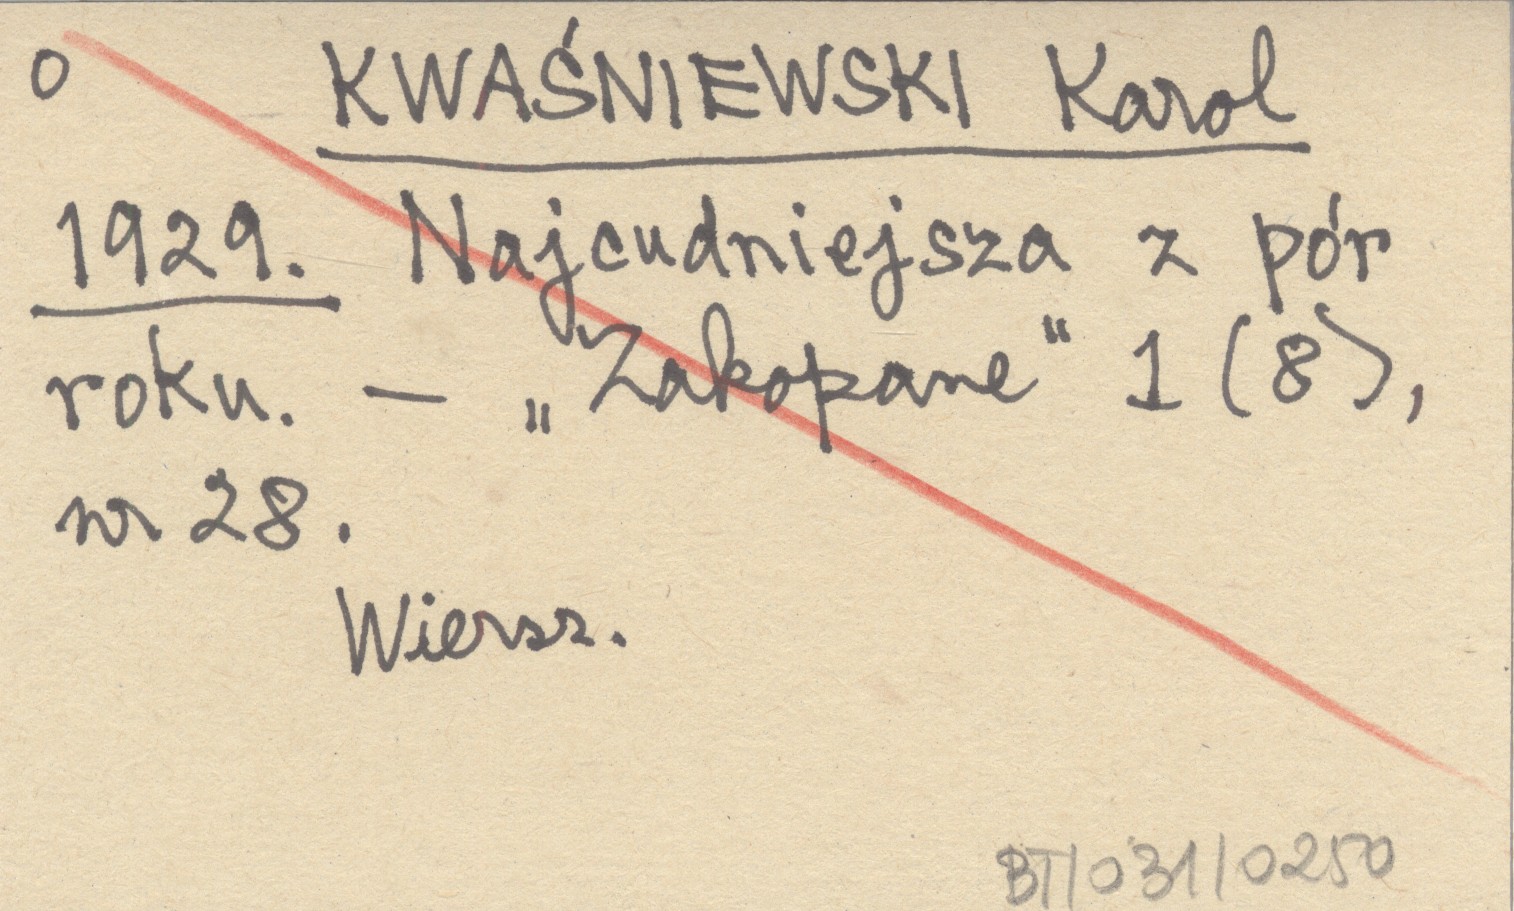 o KWAŚNIEWSKI Karol
1929. Najcudniejsza z pór
roku. – „Zakopane" 1 (8),
nr 28.
Wiersz.
BT/031/0250